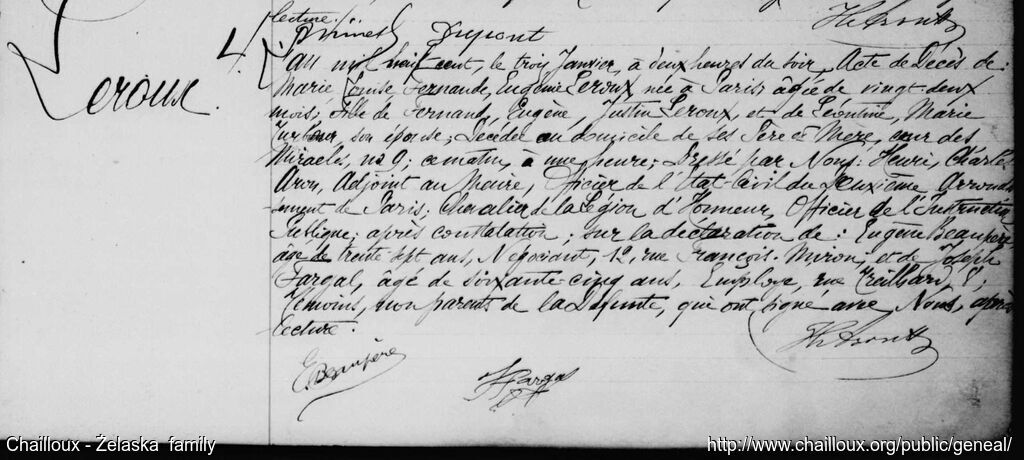 lecture.
Dupont
4.
Leroux.
L'an mil neuf cent, le trois Janvier, à deux heures du soir, Acte de Décès de :
Marie Louise Fernande, Eugénie Leroux née à Paris âgée de vingt-deux
mois ; fille de Fernand, Eugène, Justin Leroux, et de Léontine, Marie
son épouse ; Décédée au domicile de ses Père et Mère, cour des
Miracles, no 9 ; ce matin, à une heure ; Dressé par Nous : Henri, Charles
Aron, Adjoint au Maire, Officier de l'Etat-Civil du deuxième Arrondis-
sement de Paris ; Chevalier de la Légion d'Honneur, Officier de l'Instruction
Publique ; après constatation ; sur la déclaration de : Eugène Beaupère
âgé de trente sept ans, Négociant, 12, rue François-Miron, et de Joseph
Fargal, âgé de soixante cinq ans, Employé, rue Treilhard, 8 ;
Témoins, non parents de la Défunte, qui ont signé avec Nous, après
lecture :
E. Beaupère
Fargal
Chailloux - Żelaska family
http://www.chailloux.org/public/geneal/